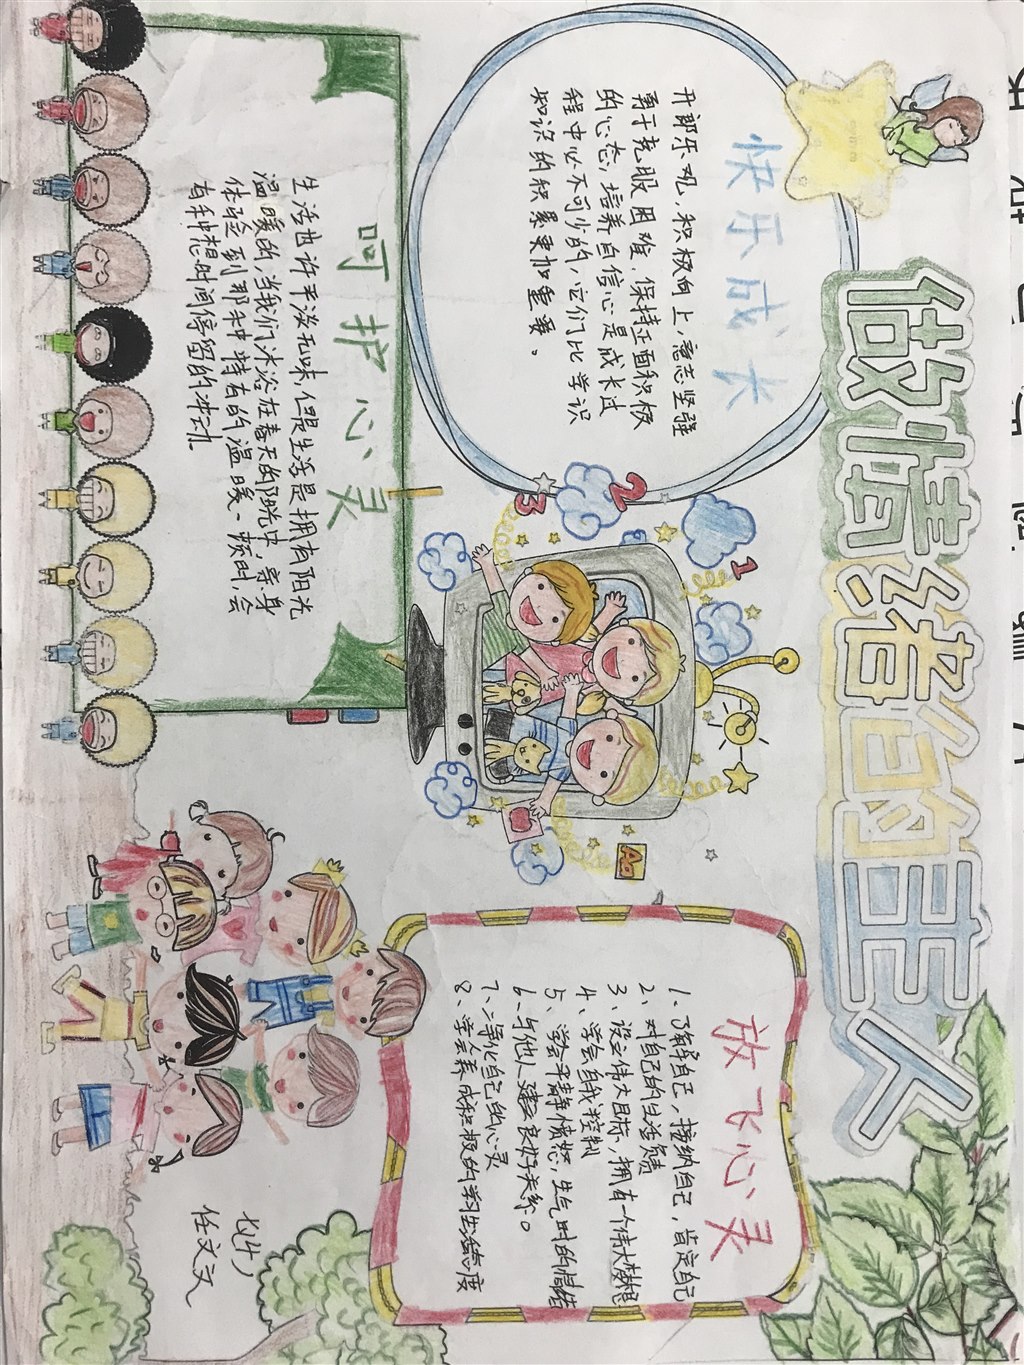 做情绪的主人
快乐成长
开朗乐观,积极向上,意志坚强
勇于克服困难,保持正面积极
的心态,培养自信心是成长过
程中必不可少的,它们比学识
知识的积累更加重要。
呵护心灵
生活也许平淡无味,但是生活是拥有阳光
温暖的,当我们沐浴在春天的阳光中,亲身
体验到那种特有的温暖一顿时会
有种想时间停留的冲动
3
2
1
A+
放飞心灵
1、了解自己,接纳自己,肯定自己
2、对自己的生活负责
3、设立伟大目标,拥有一个伟大梦想
4、学会自我控制
5、学会平静愤怒,生气时的情绪
6、与他人建立良好关系。
7、净化自己的心灵
8、学会养成积极的学习生活态度
七4
任文文